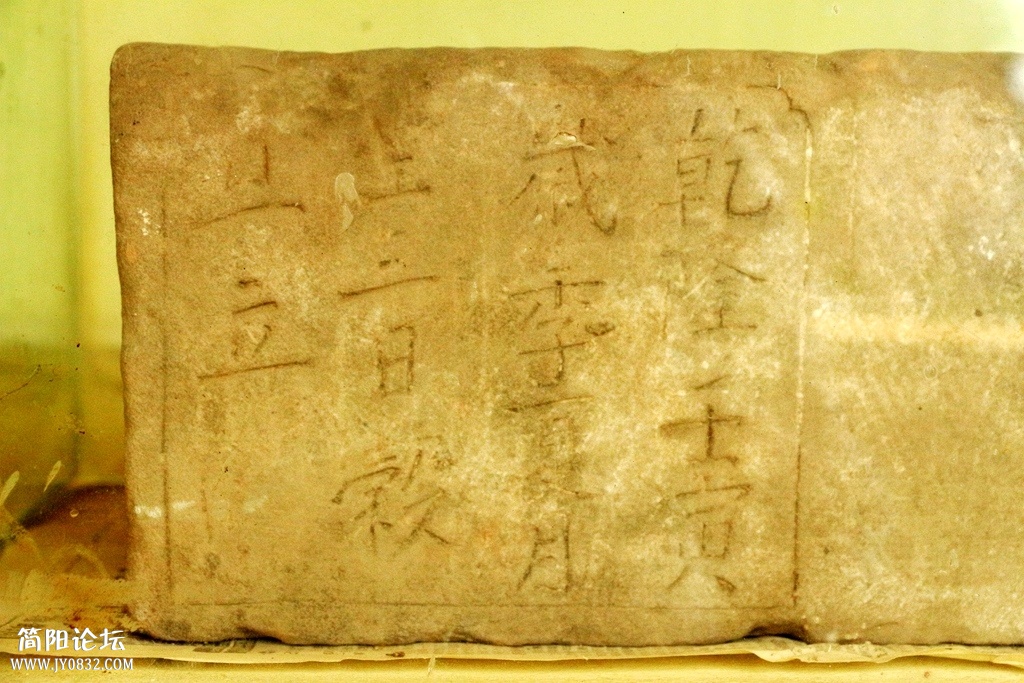 乾隆壬寅
歲季夏月
上二日穀
旦立
简阳论坛
WWW.JY0832.COM